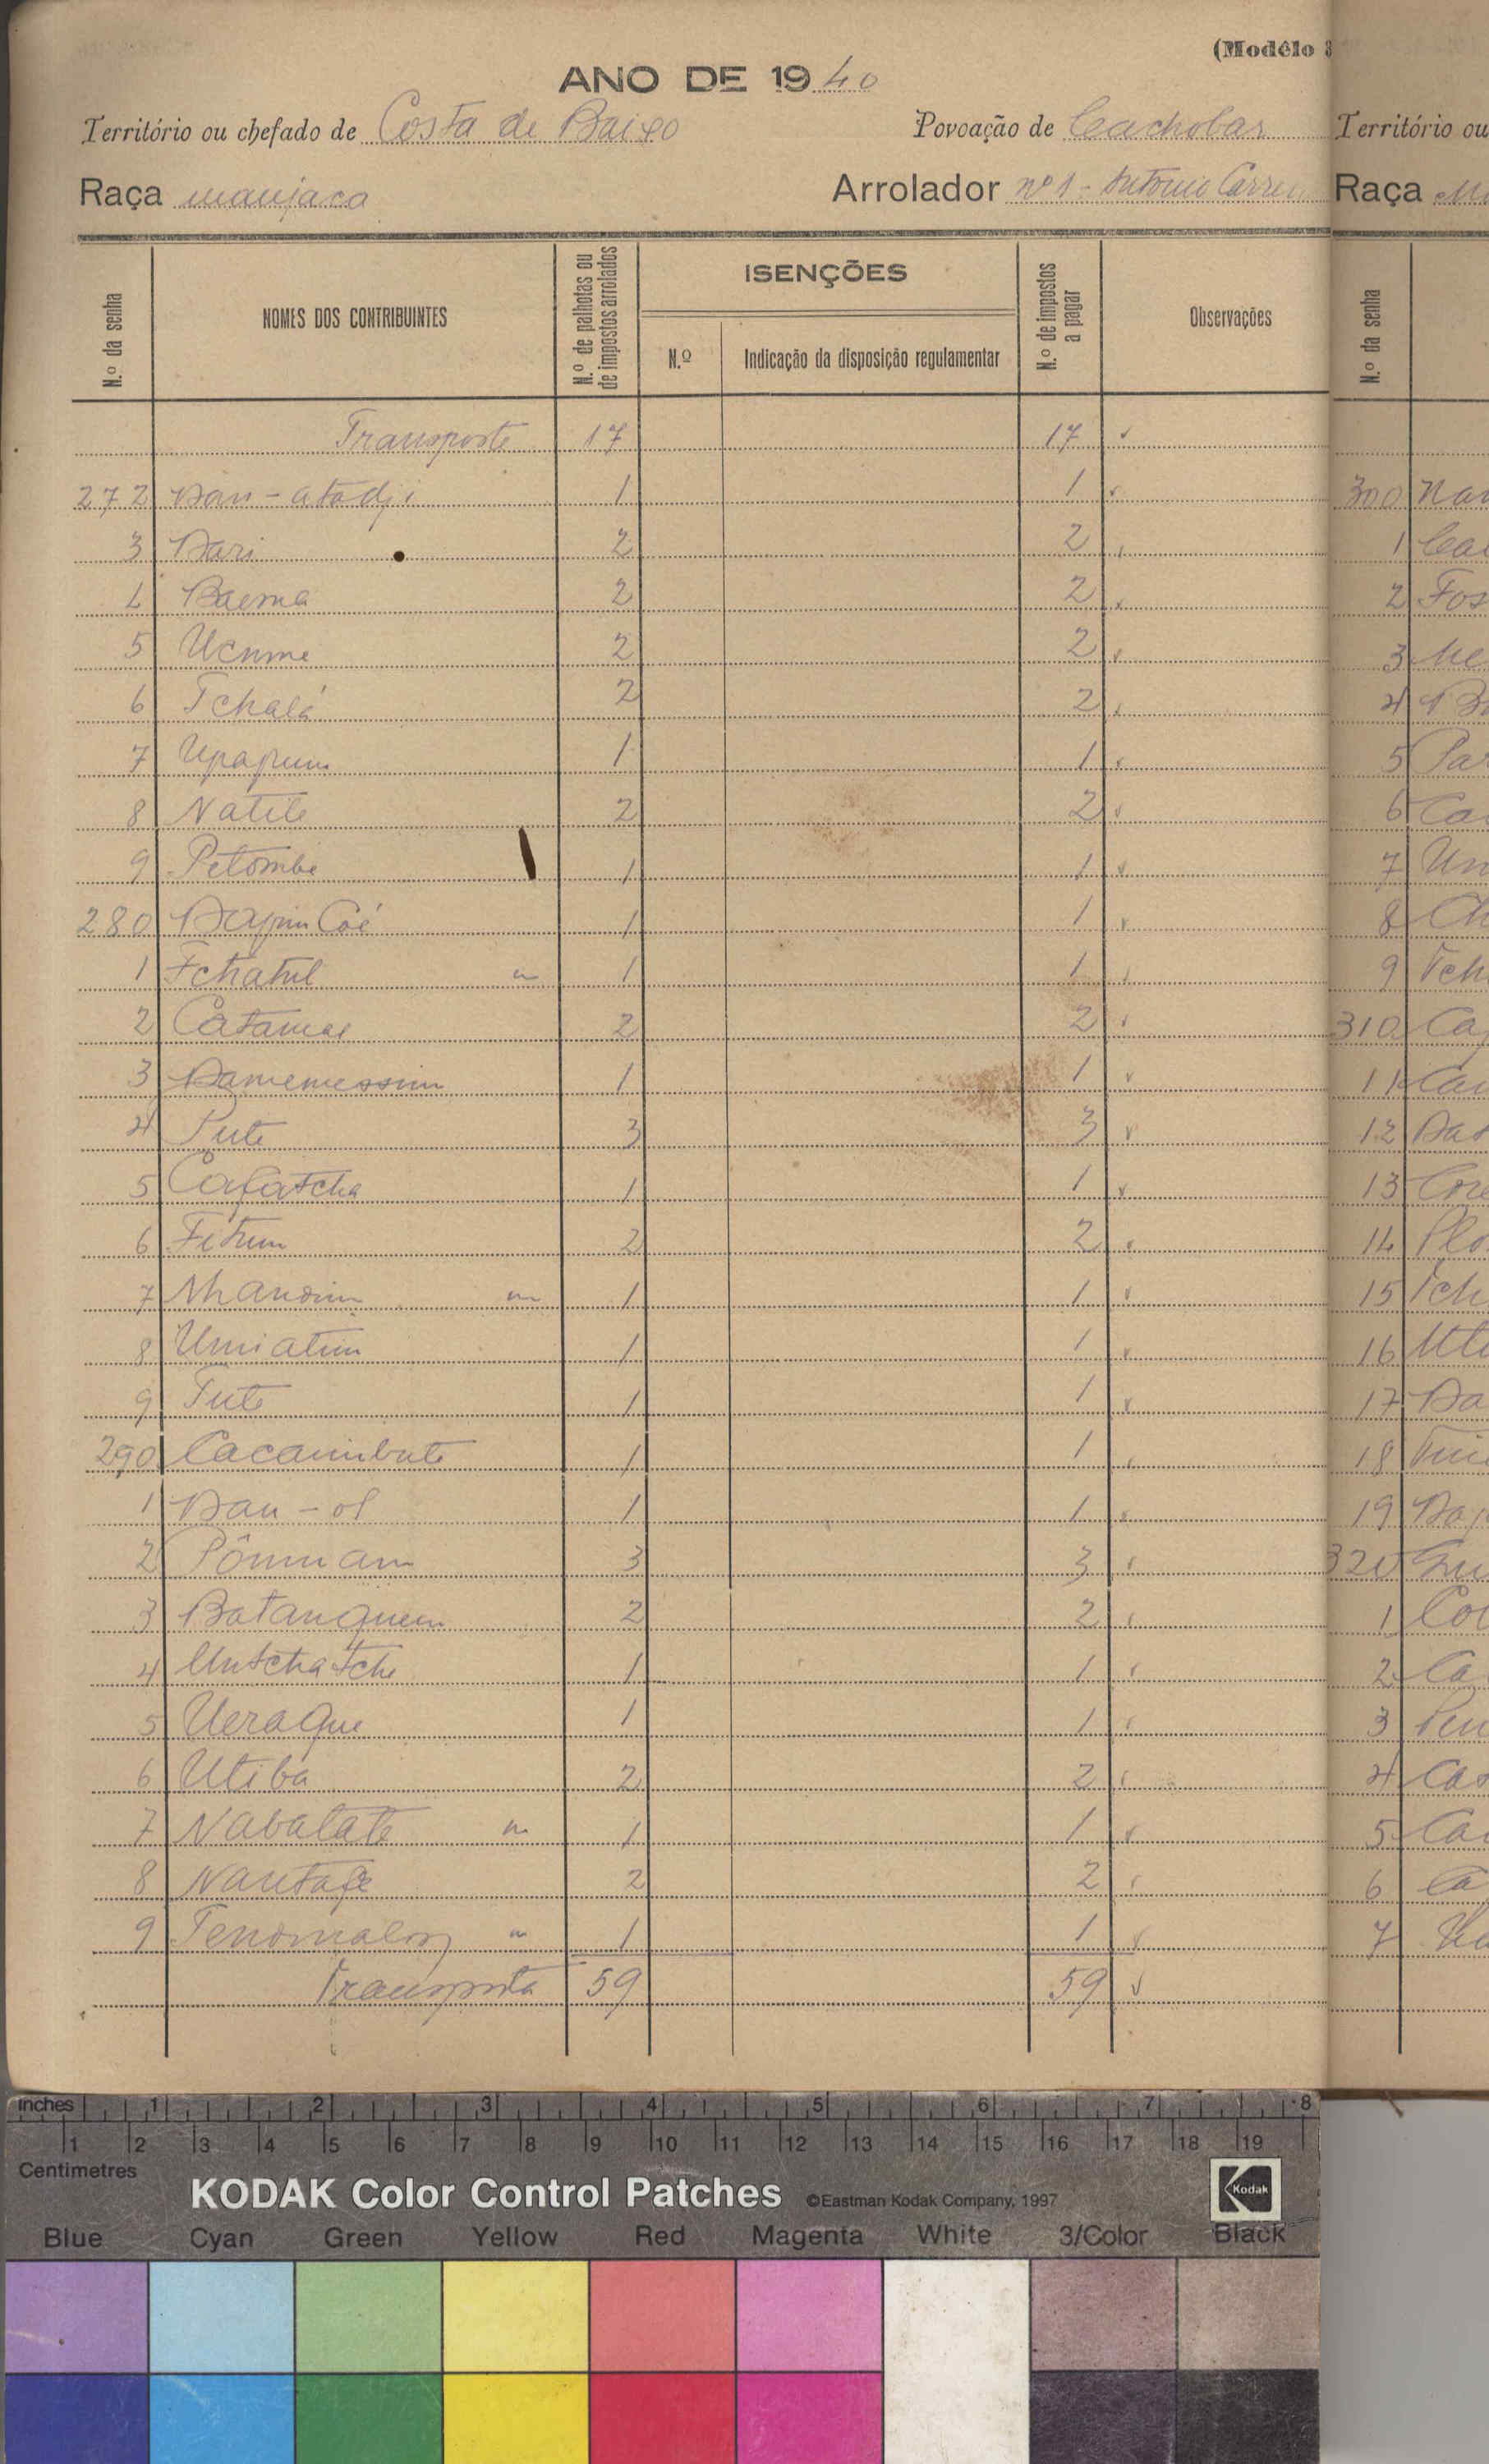 (Modêlo 3
ANO DE 1940
Território ou chefado de Costa de Baixo Povoação de Cachobar
Raça manjaca Arrolador nº 1 - António Carrei
N.º da senha
NOMES DOS CONTRIBUINTES
N.º de palhotas ou de impostos arrolados
ISENÇÕES
N.º
Indicação da disposição regulamentar
N.º de impostos a pagar
Observações
Transporte 17 17
272 Dan-atadji 1 1
3 Dari 2 2
4 Baema 2 2
5 Ucume 2 2
6 Tchalá 2 2
7 Upapum 1 1
8 Natile 2 2
9 Petombe 1 1
280 Dapin Coé 1 1
1 Tchatul 1 1
2 Catamae 2 2
3 Damemessim 1 1
4 Pute 3 3
5 Cafatcha 1 1
6 Fitum 2 2
7 1 1
8 Umiatim 1 1
9 Tute 1 1
290 Cacaimbute 1 1
1 Dau-ol 1 1
2 3 3
3 Batanquem 2 2
4 Untchatche 1 1
5 Ueraque 1 1
6 Utiba 2 2
7 Nabalate 1 1
8 Nantafe 2 2
9 1 1
Transporte 59 59
Território ou
Raça
N.º da senha
300 Nan
1
2 Fos
3
4
5 Par
6
7 Un
8 Ch
9 Tch
310 Ca
11
12
13
14
15 Tch
16
17 Da
18
19
320
1
2 Ca
3
4
5
6 Ca
7
inches 1 2 3 4 5 6 7 8
1 2 3 4 5 6 7 8 9 10 11 12 13 14 15 16 17 18 19
Centimetres
KODAK Color Control Patches ©Eastman Kodak Company, 1997 Kodak
Blue Cyan Green Yellow Red Magenta White 3/Color Black